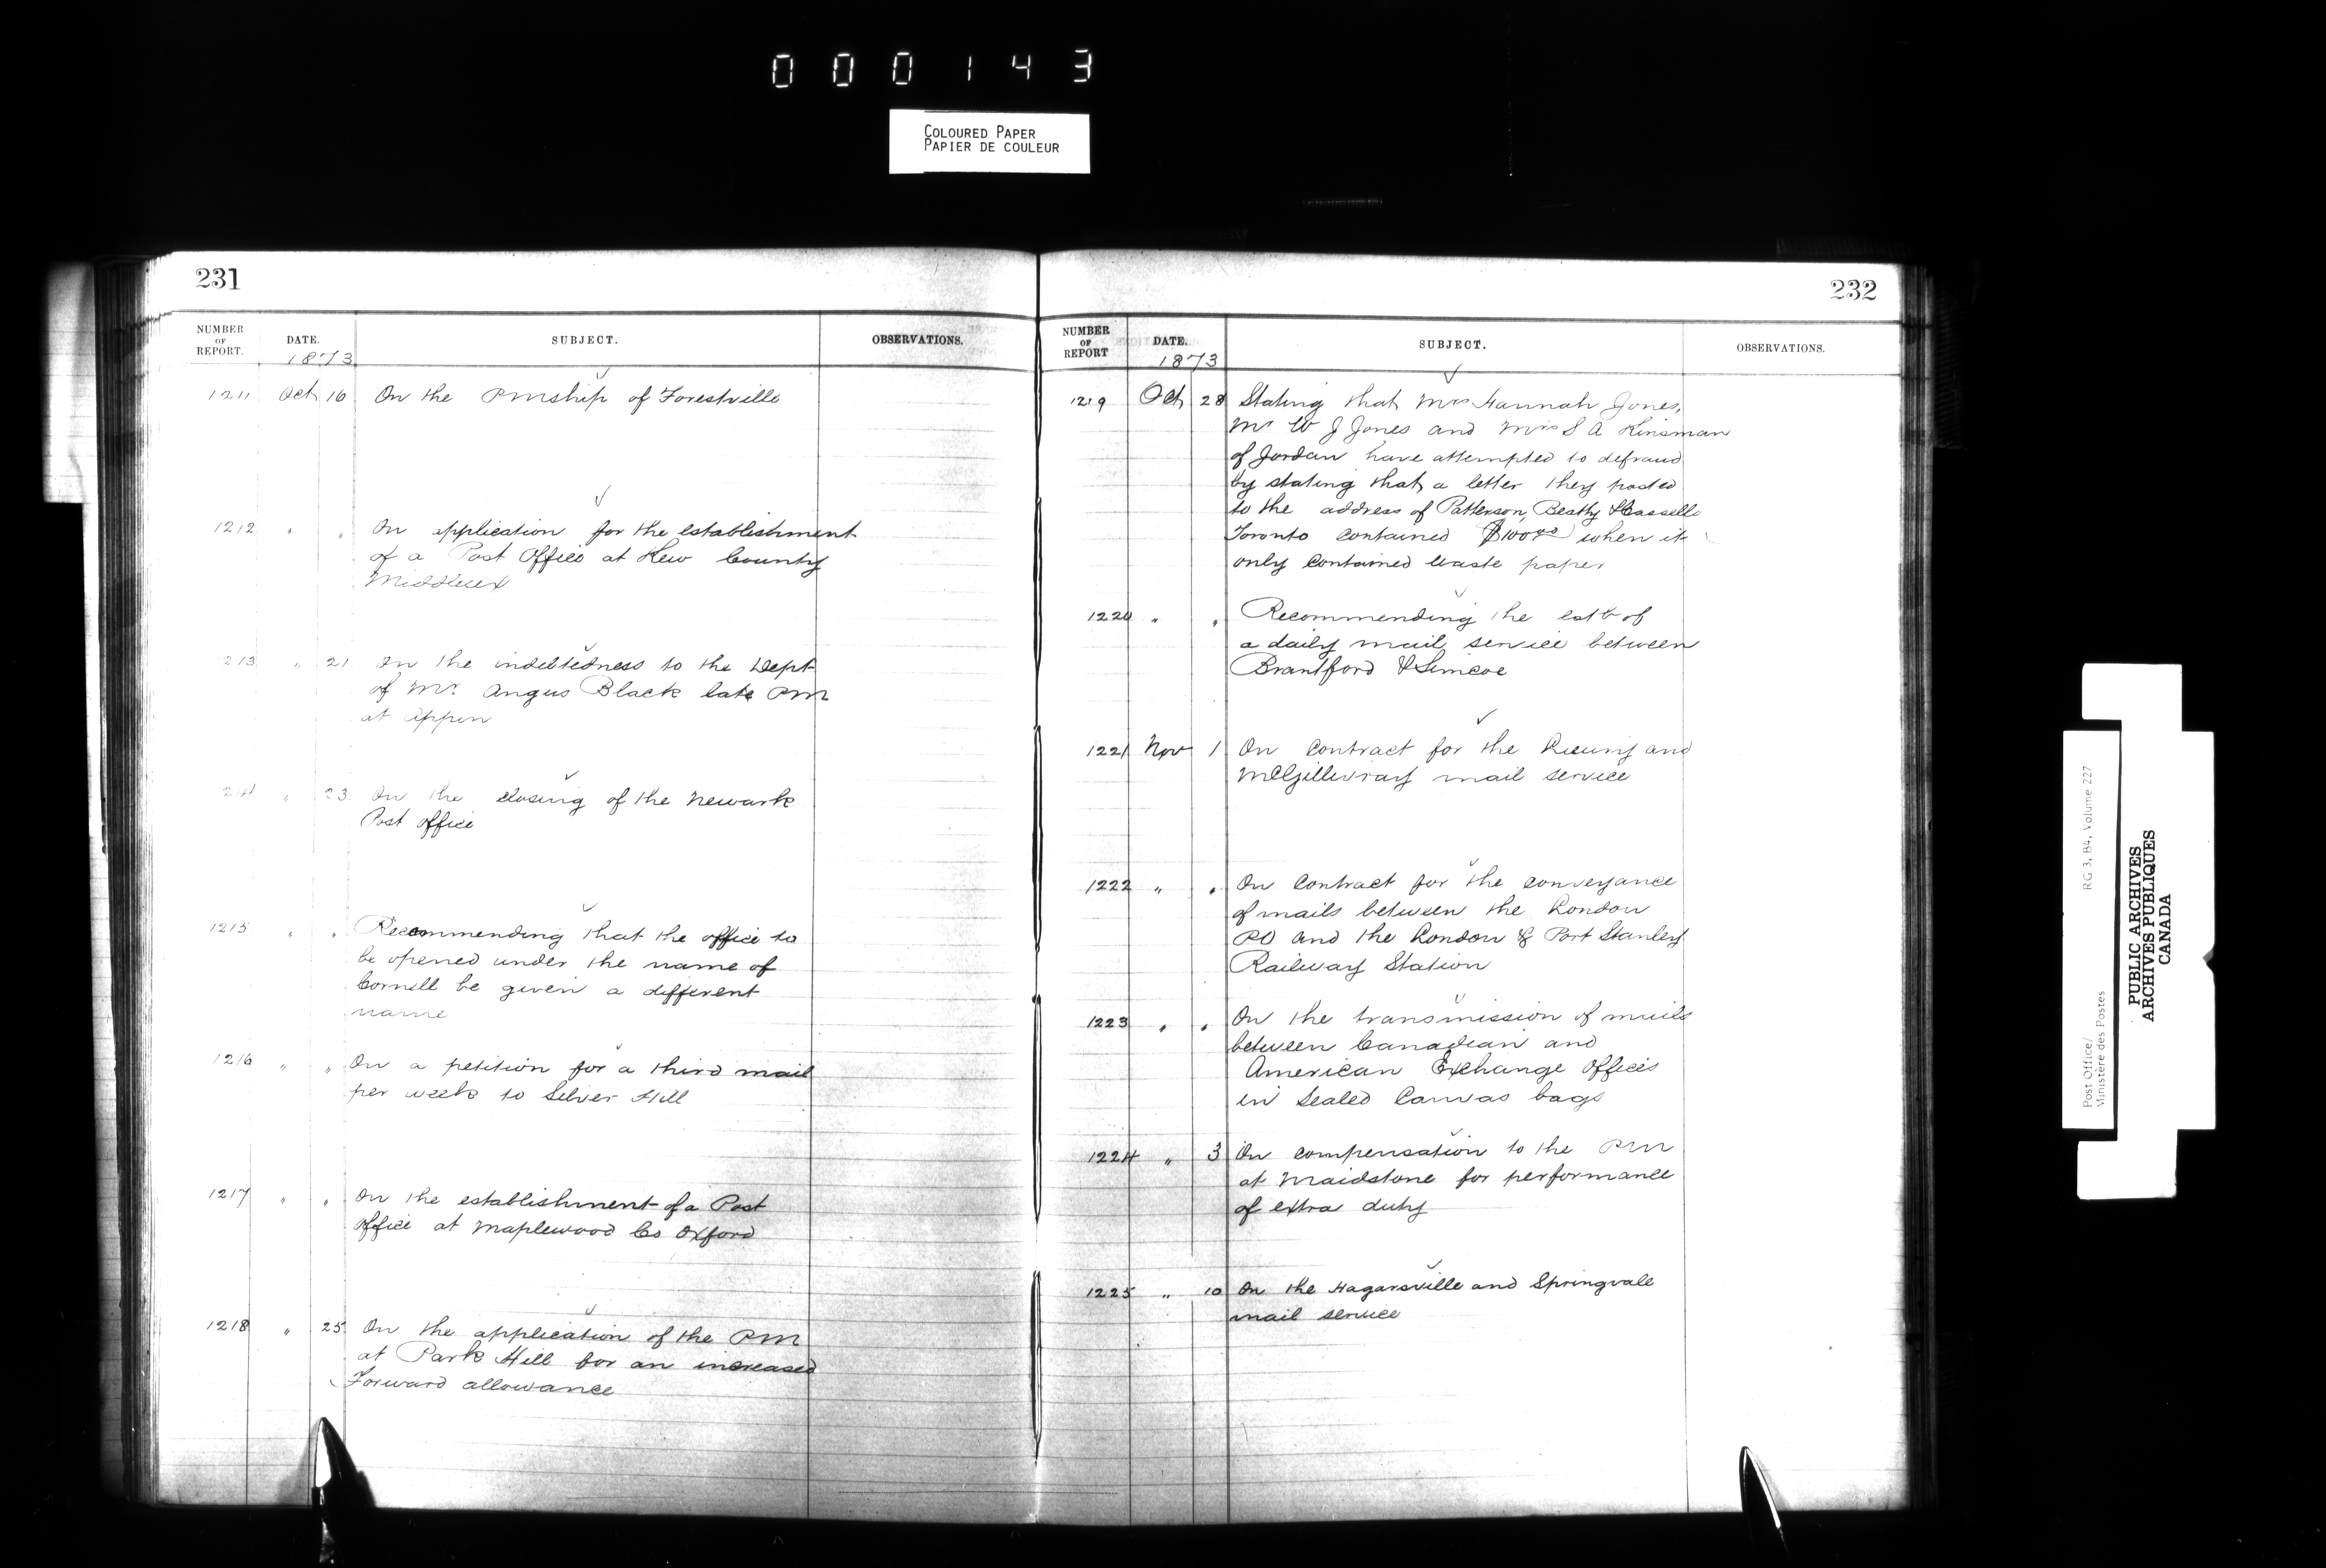 000143
COLOURED PAPER
PAPIER DE COULEUR
231
NUMBER OF REPORT. DATE. SUBJECT. OBSERVATIONS.
1873
1211 Oct 16 On the PMship of Forestville
1212 " " On application for the establishment
of a Post Office at Kew County
Middlesex
1213 " 21 On the indebtedness to the Dept
of Mr. Angus Black late PM
at Appin
1214 " 23 On the closing of the Newark
Post office
1215 " " Recommending that the office to
be opened under the name of
Cornell be given a different
name
1216 " " On a petition for a third mail
per week to Silver Hill
1217 " " On the establishment of a Post
office at Maplewood Co Oxford
1218 " 25 On the application of the PM
at Park Hill for an increased
Forward allowance
232
NUMBER OF REPORT DATE. SUBJECT. OBSERVATIONS.
1873
1219 Oct 28 Stating that Mrs Hannah Jones,
Mr W J Jones and S A Kinsman
of Jordan have attempted to defraud
by stating that a letter they posted
to the address of Patterson, Beatty &
Toronto contained $100.00 when it
only contained waste paper
1220 " " Recommending the estb of
a daily mail service between
Brantford & Simcoe
1221 Nov 1 On contract for the and
McGillivray mail service
1222 " " On contract for the conveyance
of mails between the London
PO and the London & Port Stanley
Railway Station
1223 " " On the transmission of mails
between Canadian and
American Exchange Offices
in Sealed Canvas bags
1224 " 3 On compensation to the PM
at Maidstone for performance
of extra duty
1225 " 10 On the Hagarsville and Springvale
mail service
Post Office/
Ministère des Postes
RG 3, B4, Volume 227
PUBLIC ARCHIVES
ARCHIVES PUBLIQUES
CANADA